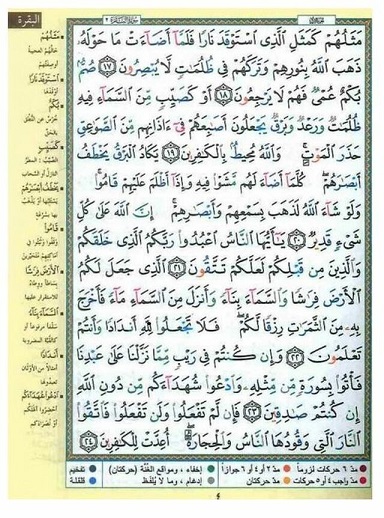 البقرة
سورة البقرة ٢
مَثَلُهُمْ كَمَثَلِ الَّذِي اسْتَوْقَدَ نَارًا فَلَمَّا أَضَاءَتْ مَا حَوْلَهُ
ذَهَبَ اللَّهُ بِنُورِهِمْ وَتَرَكَهُمْ فِي ظُلُمَاتٍ لَا يُبْصِرُونَ ١٧ صُمٌّ
بُكْمٌ عُمْيٌ فَهُمْ لَا يَرْجِعُونَ ١٨ أَوْ كَصَيِّبٍ مِنَ السَّمَاءِ فِيهِ
ظُلُمَاتٌ وَرَعْدٌ وَبَرْقٌ يَجْعَلُونَ أَصَابِعَهُمْ فِي ءَاذَانِهِمْ مِنَ الصَّوَاعِقِ
حَذَرَ الْمَوْتِ وَاللَّهُ مُحِيطٌ بِالْكَافِرِينَ ١٩ يَكَادُ الْبَرْقُ يَخْطَفُ
أَبْصَارَهُمْ كُلَّمَا أَضَاءَ لَهُمْ مَشَوْا فِيهِ وَإِذَا أَظْلَمَ عَلَيْهِمْ قَامُوا
وَلَوْ شَاءَ اللَّهُ لَذَهَبَ بِسَمْعِهِمْ وَأَبْصَارِهِمْ إِنَّ اللَّهَ عَلَى كُلِّ
شَيْءٍ قَدِيرٌ ٢٠ يَاأَيُّهَا النَّاسُ اعْبُدُوا رَبَّكُمُ الَّذِي خَلَقَكُمْ
وَالَّذِينَ مِنْ قَبْلِكُمْ لَعَلَّكُمْ تَتَّقُونَ ٢١ الَّذِي جَعَلَ لَكُمُ
الْأَرْضَ فِرَاشًا وَالسَّمَاءَ بِنَاءً وَأَنْزَلَ مِنَ السَّمَاءِ مَاءً فَأَخْرَجَ
بِهِ مِنَ الثَّمَرَاتِ رِزْقًا لَكُمْ فَلَا تَجْعَلُوا لِلَّهِ أَنْدَادًا وَأَنْتُمْ
تَعْلَمُونَ ٢٢ وَإِنْ كُنْتُمْ فِي رَيْبٍ مِمَّا نَزَّلْنَا عَلَى عَبْدِنَا
فَأْتُوا بِسُورَةٍ مِنْ مِثْلِهِ وَادْعُوا شُهَدَاءَكُمْ مِنْ دُونِ اللَّهِ
إِنْ كُنْتُمْ صَادِقِينَ ٢٣ فَإِنْ لَمْ تَفْعَلُوا وَلَنْ تَفْعَلُوا فَاتَّقُوا
النَّارَ الَّتِي وَقُودُهَا النَّاسُ وَالْحِجَارَةُ أُعِدَّتْ لِلْكَافِرِينَ ٢٤
مَثَلُهُمْ
اسْتَوْقَدَ نَارًا
أوقدها
بُكْمٌ
خُرْسٌ عن النُّطْقِ
كَصَيِّبٍ
يَخْطَفُ أَبْصَارَهُمْ
قَامُوا
الْأَرْضَ فِرَاشًا
للاستقرار عليها
السَّمَاءَ بِنَاءً
أَنْدَادًا
ادْعُوا شُهَدَاءَكُمْ
مدّ ٦ حركات لزوماً
مدّ ٢ أو ٤ أو ٦ جوازاً
إخفاء، ومواقع الغُنَّة (حركتان)
تفخيم
مدّ واجب ٤ أو ٥ حركات
مدّ حركتان
إدغام، وما لا يُلفَظ
قلقلة
٤